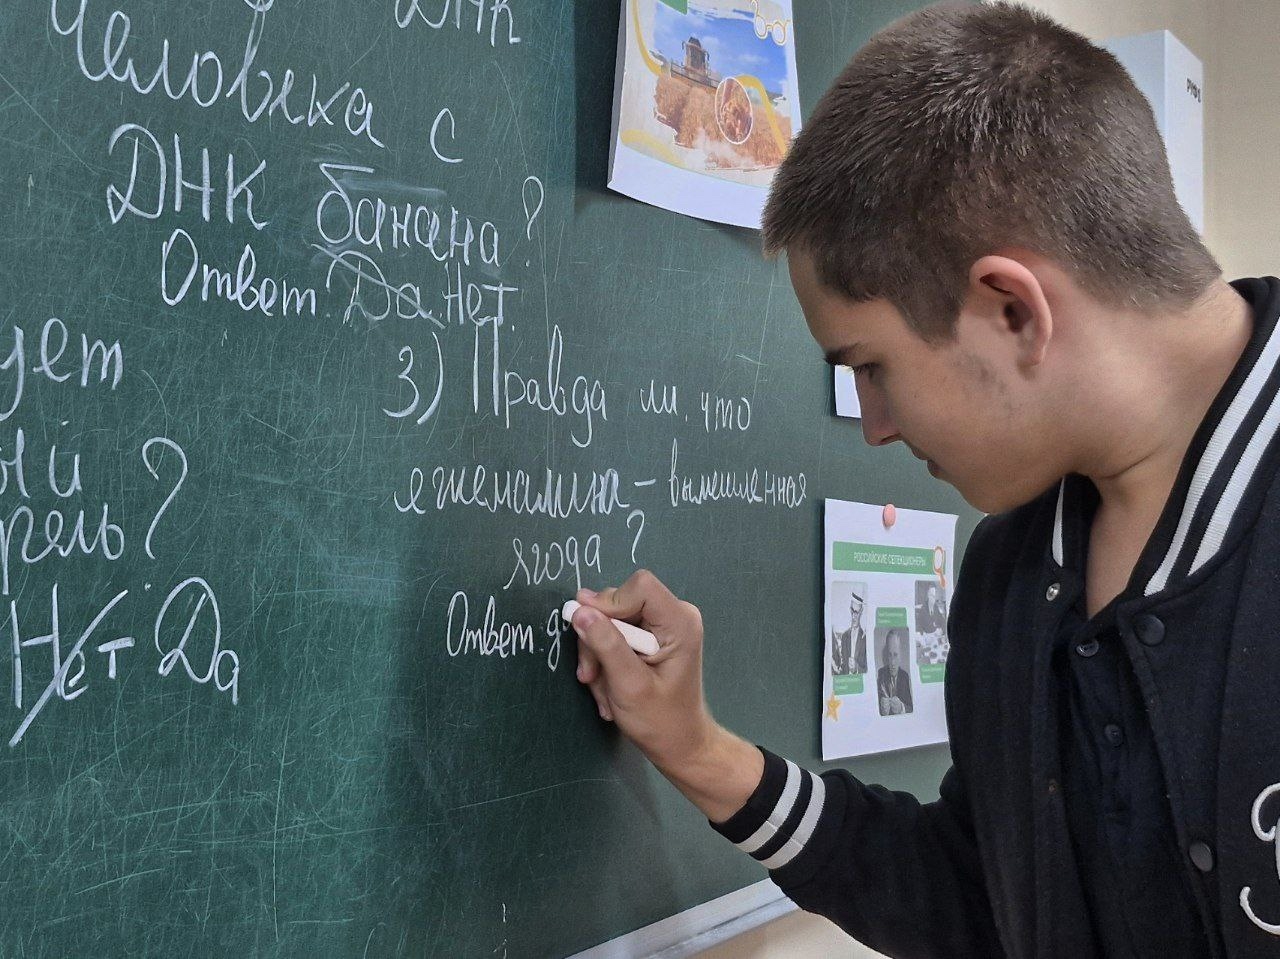 ДНК
человека с
ДНК банана?
Ответ. Да. Нет.
ует
ый
рель?
Нет Да
3) Правда ли, что
ежемалина - вымешленная
ягода?
Ответ: д
РОССИЙСКИЕ СЕЛЕКЦИОНЕРЫ